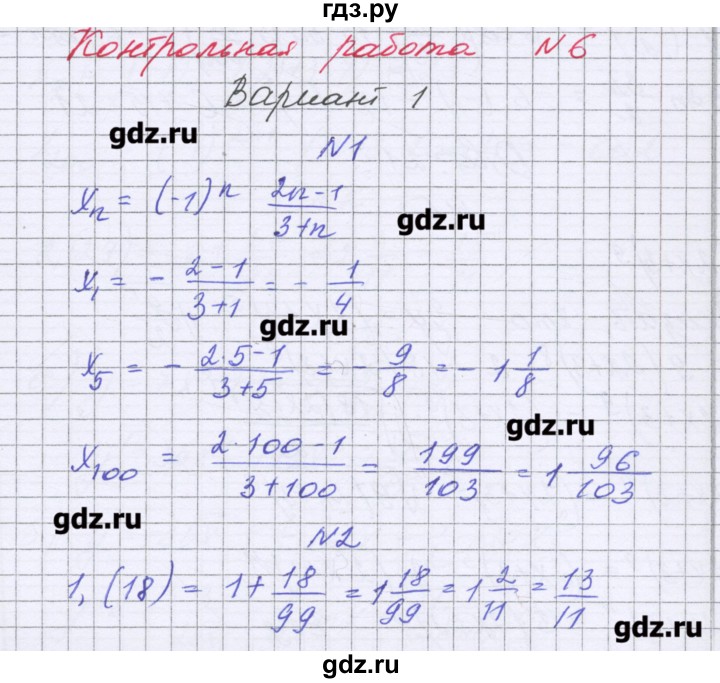 гдз.ру
Контрольная работа №6
Вариант 1
gdz.ru
№1
xₙ = (-1)ⁿ (2n-1)/(3+n)
gdz.ru
x₁ = - (2-1)/(3+1) = - 1/4
gdz.ru
x₅ = - (2·5-1)/(3+5) = - 9/8 = - 1 1/8
gdz.ru
x₁₀₀ = (2·100-1)/(3+100) = 199/103 = 1 96/103
gdz.ru
№2
1,(18) = 1+ 18/99 = 1 18/99 = 1 2/11 = 13/11
gdz.ru
gdz.ru